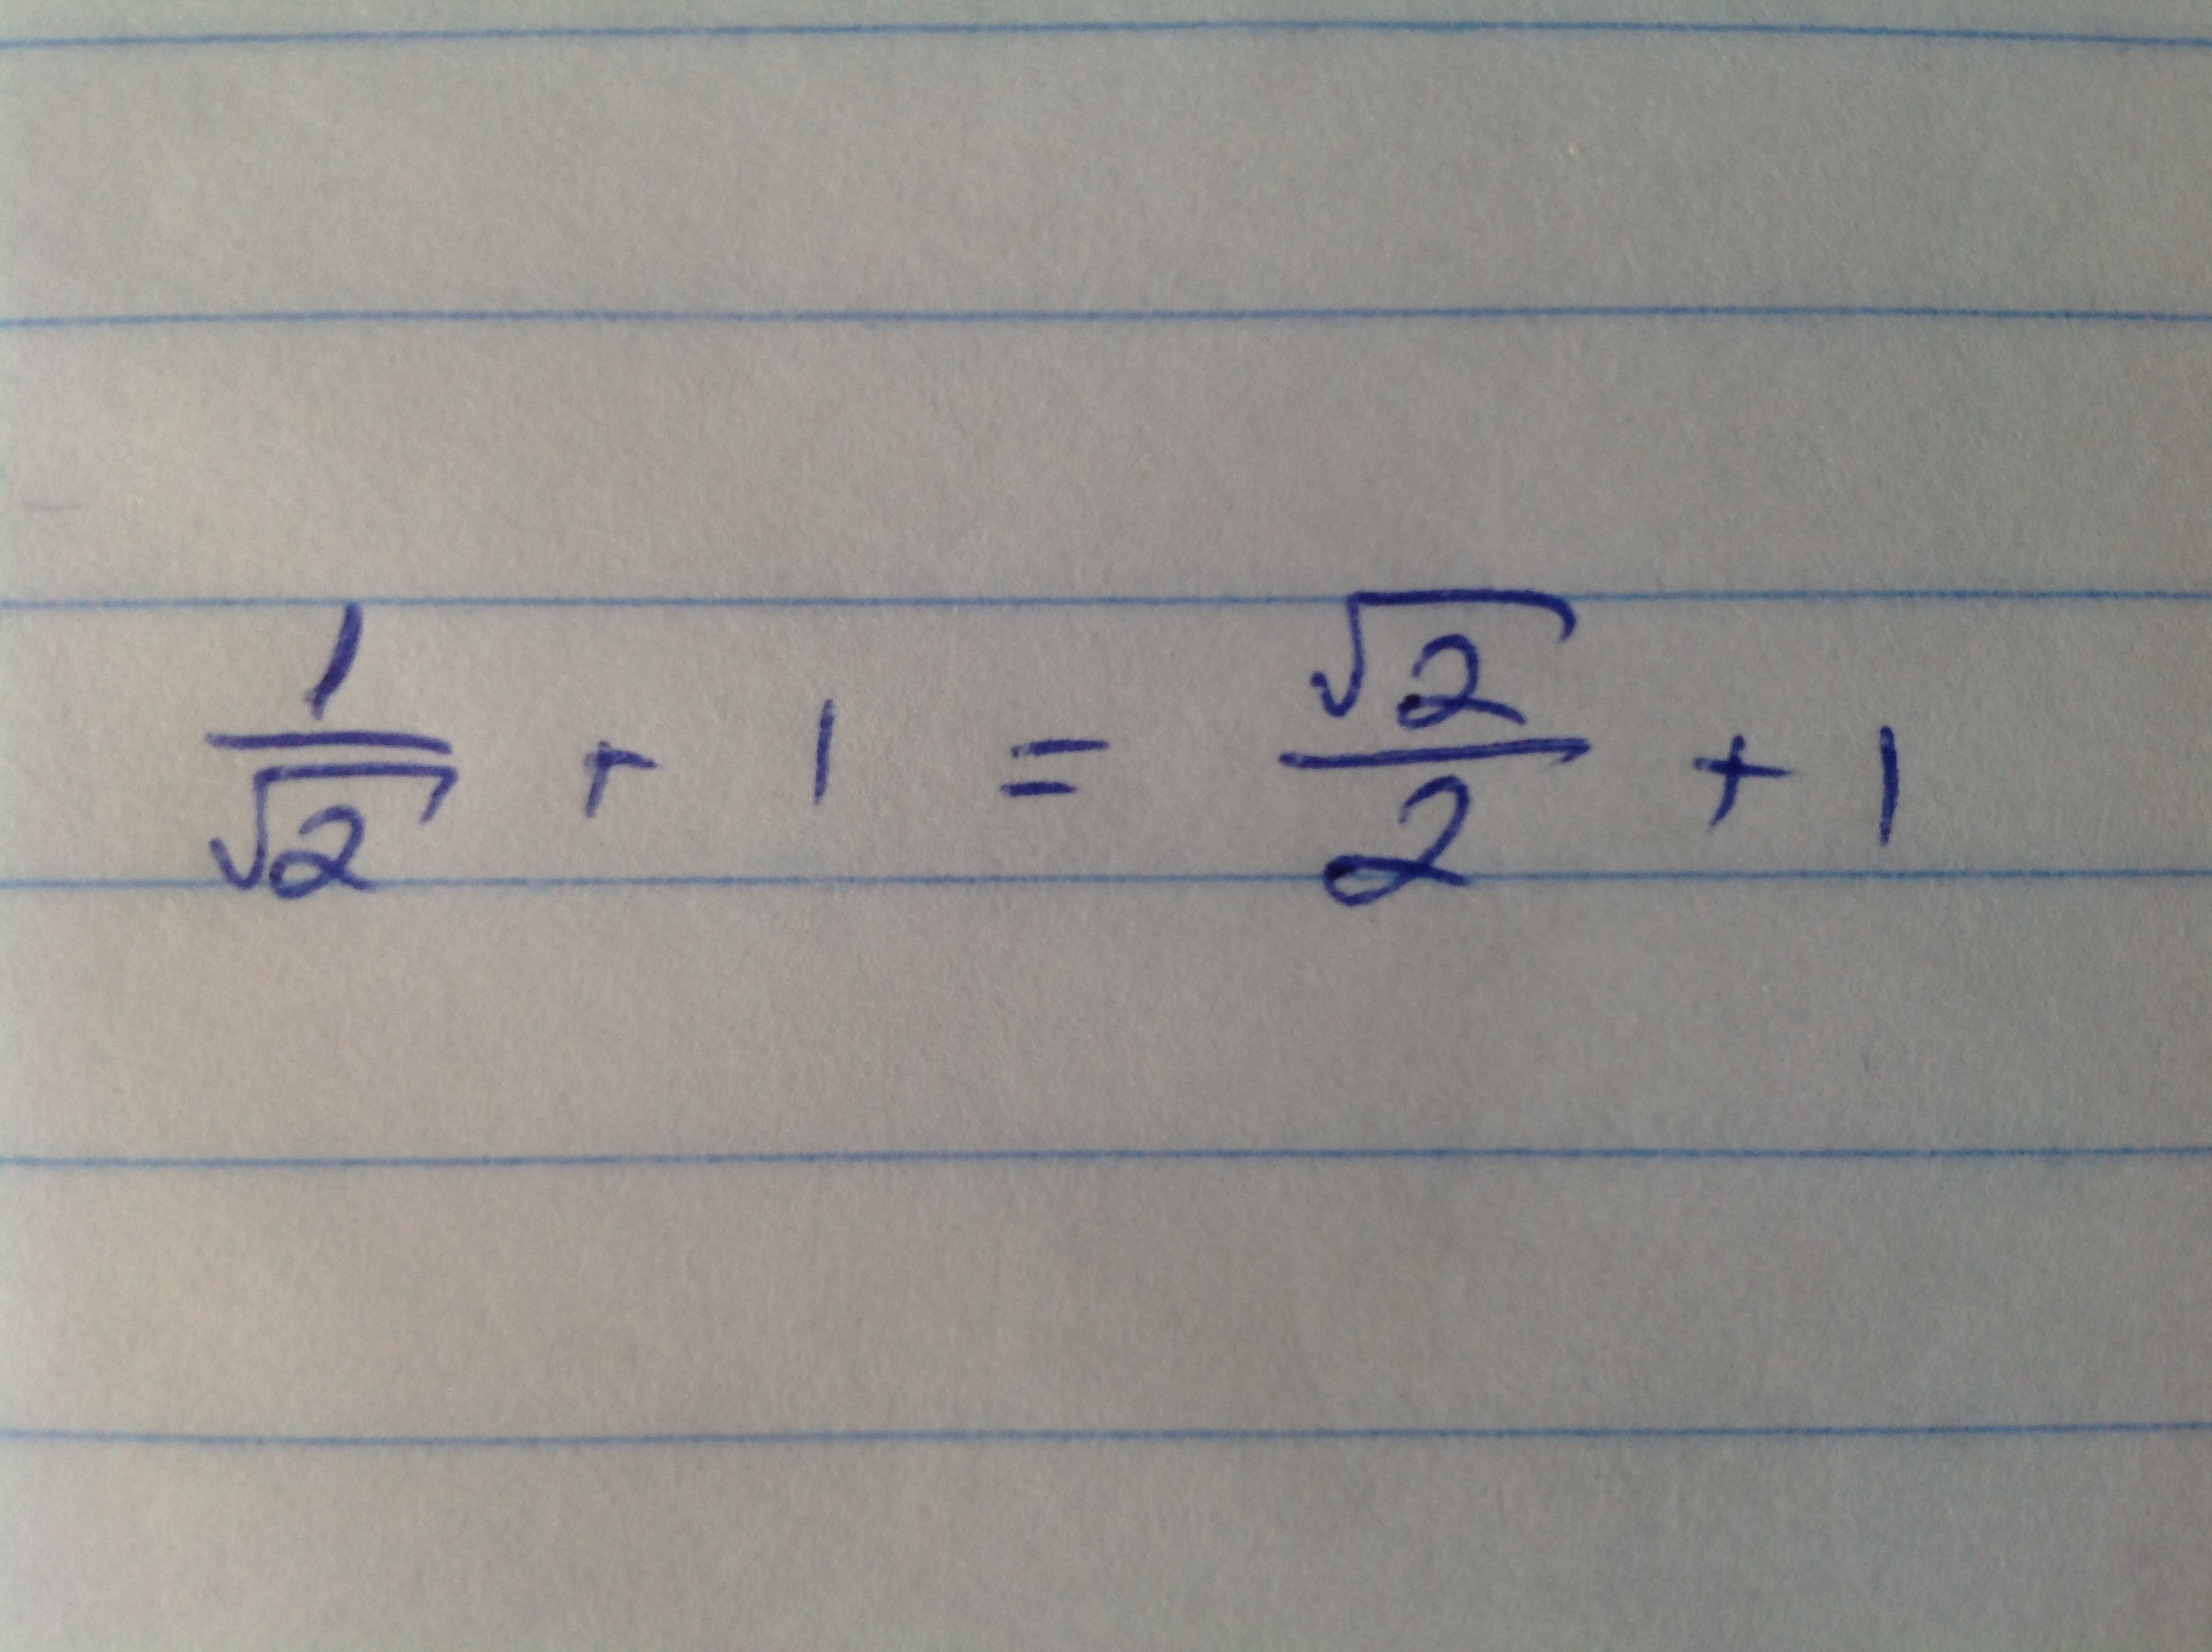 1/√2 + 1 = √2/2 + 1